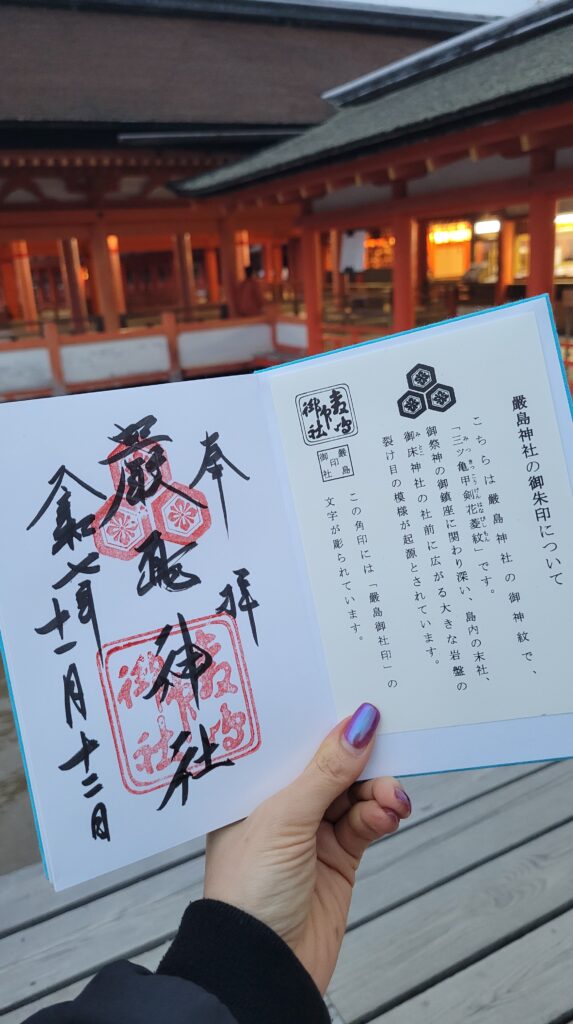 奉拝
嚴島神社
令和七年十一月十二日
嚴島
印
御社
嚴島神社の御朱印について
こちらは嚴島神社の御神紋で、
「三ツ亀甲剣花菱紋」です。
みつきっこうけんはなびしもん
御祭神の御鎮座に関わり深い、島内の末社、
御床神社の社前に広がる大きな岩盤の
みとこ
裂け目の模様が起源とされています。
嚴島
印
御社
嚴島
印
御社
この角印には「嚴島御社印」の
文字が彫られています。